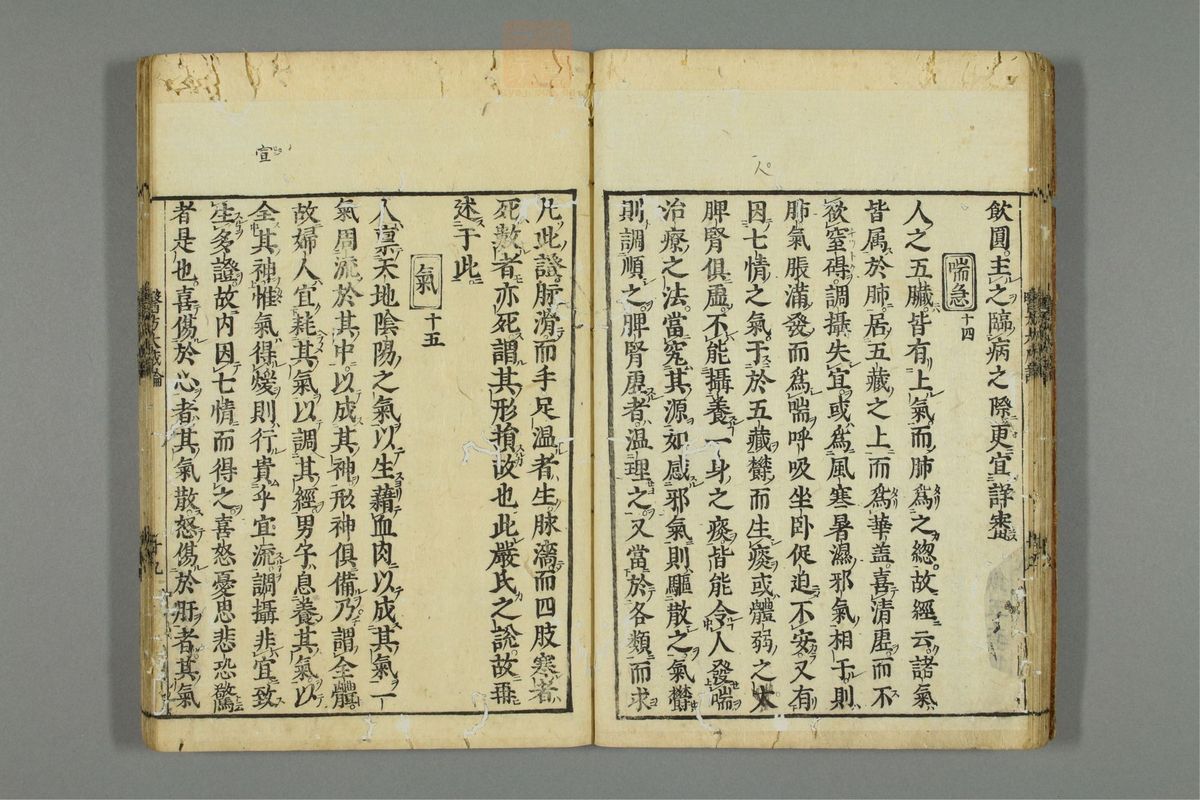 飲圓主之臨病之際更宜詳審
喘急 十四
人之五臟皆有上氣而肺爲之總故經云諸氣
皆属於肺居五藏之上而爲華盖喜清虛而不
欲窒碍調攝失宜或爲風寒暑濕邪氣相干則
肺氣脹滿發而爲喘呼吸坐卧促迫不安又有
因七情之氣干於五藏欝而生痰或體弱之人
脾腎俱虛不能攝養一身之痰皆能令人發喘
治療之法當究其源如感邪氣則驅散之氣欝
則調順之脾腎虛者温理之又當於各類而求
凡此證脉滑而手足温者生脉濇而四肢寒者
死數者亦死謂其形損故也此嚴氏之說故再
述于此
氣 十五
人禀天地陰陽之氣以生藉血肉以成其氣一
氣周流於其中以成其神形神俱備乃謂全體
故婦人宜耗其氣以調其經男子息養其氣以
全其神惟氣得煖則行貴乎宜流調攝非宜致
生多證故内因七情而得之喜怒憂思悲恐驚
者是也喜傷於心者其氣散怒傷於肝者其氣
宣